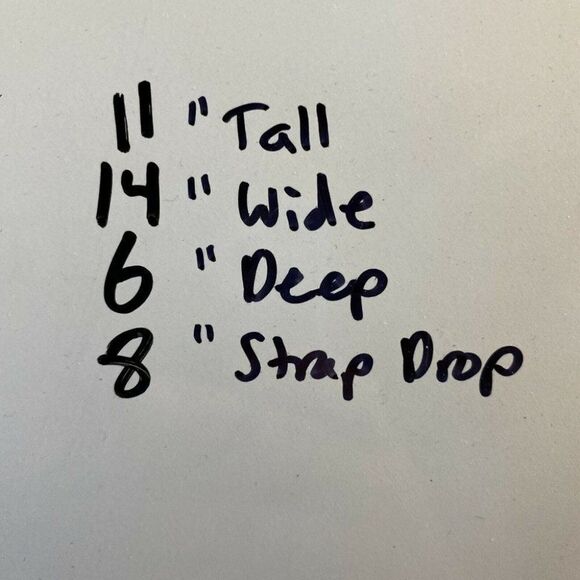 11 " Tall
14 " Wide
6 " Deep
8 " Strap Drop